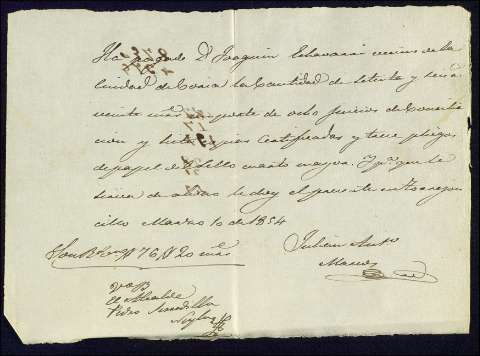 Ha pagado Dn Joaquin Echavarri vecino de la
Ciudad de Coria la Cantidad de setenta y seis
veinte mrs importe de ocho juicios de Concilia
cion y siete copias Certificadas y trece pliegos
de papel de sello cuarto mayor. Y pa que le
sirva de le doy el presente en Torrejon
cillo Marzo 10 de 1854
Son Rs 76 20 mrs
Julian Anto
VoBo
El Alcalde
Pedro